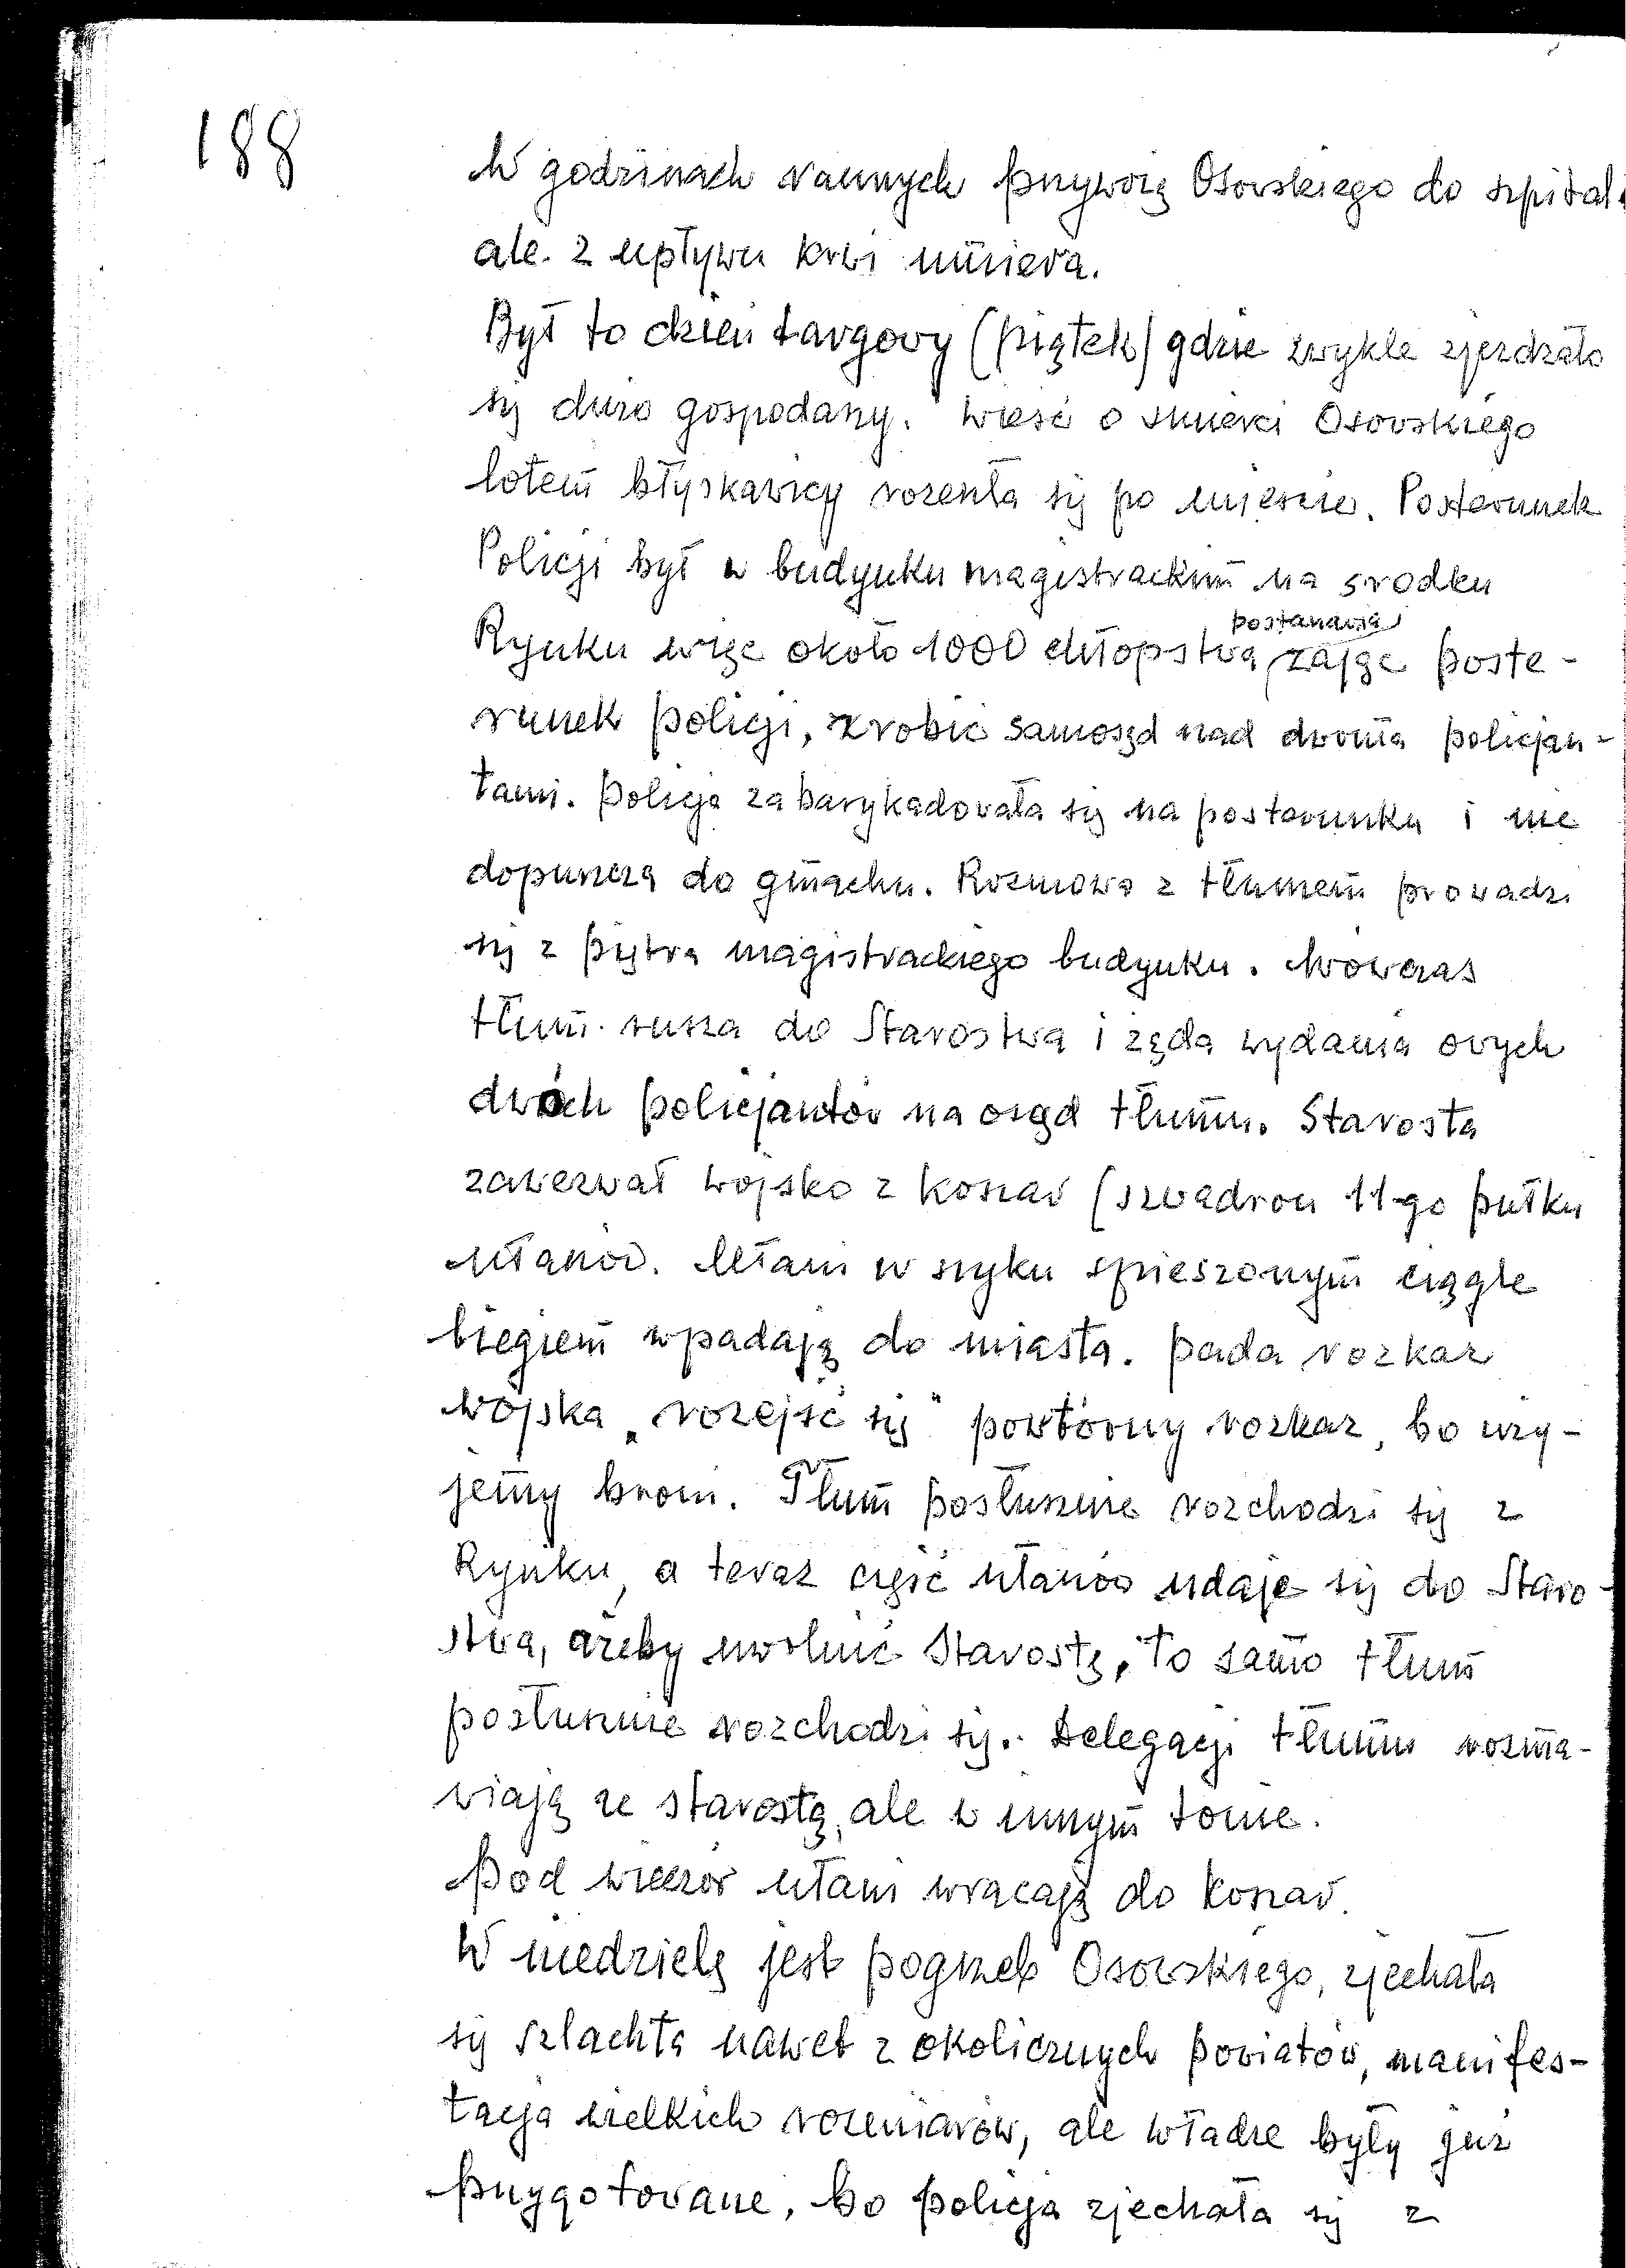 188
W godzinach rannych przywożą Osowskiego do szpitala
ale z upływu krwi umiera.
Był to dzień targowy (piątek) gdzie zwykle zjeżdżało
się dużo gospodarzy. Wieść o śmierci Osowskiego
lotem błyskawicy rozeszła się po mieście. Posterunek
Policji był w budynku magistrackim na środku
Rynku więc około 1000 chłopstwa postanawia zająć poste-
runek policji, zrobić samosąd nad dwoma policjan-
tami. Policja zabarykadowała się na posterunku i nie
dopuszcza do gmachu. Rozmowa z tłumem prowadzi
się z piętra magistrackiego budynku. Wówczas
tłum rusza do Starostwa i żąda wydania owych
dwóch policjantów na osąd tłumu. Starosta
zawezwał wojsko z koszar (szwadron 11-go pułku
ułanów. Ułani w szyku spieszonym ciągle
biegiem wpadają do miasta. Pada rozkaz
wojska „rozejść się" powtórny rozkaz, bo uży-
jemy broni. Tłum posłusznie rozchodzi się z
Rynku, a teraz część ułanów udaje się do Staro-
stwa, ażeby uwolnić Starostę, to samo tłum
posłusznie rozchodzi się. Delegacji tłumu rozma-
wiają ze starostą, ale w innym tonie.
Pod wieczór ułani wracają do koszar.
W niedzielę jest pogrzeb Osowskiego, zjechała
się szlachta nawet z okolicznych powiatów, manifes-
tacja wielkich rozmiarów, ale władze były już
przygotowane, bo policja zjechała się z